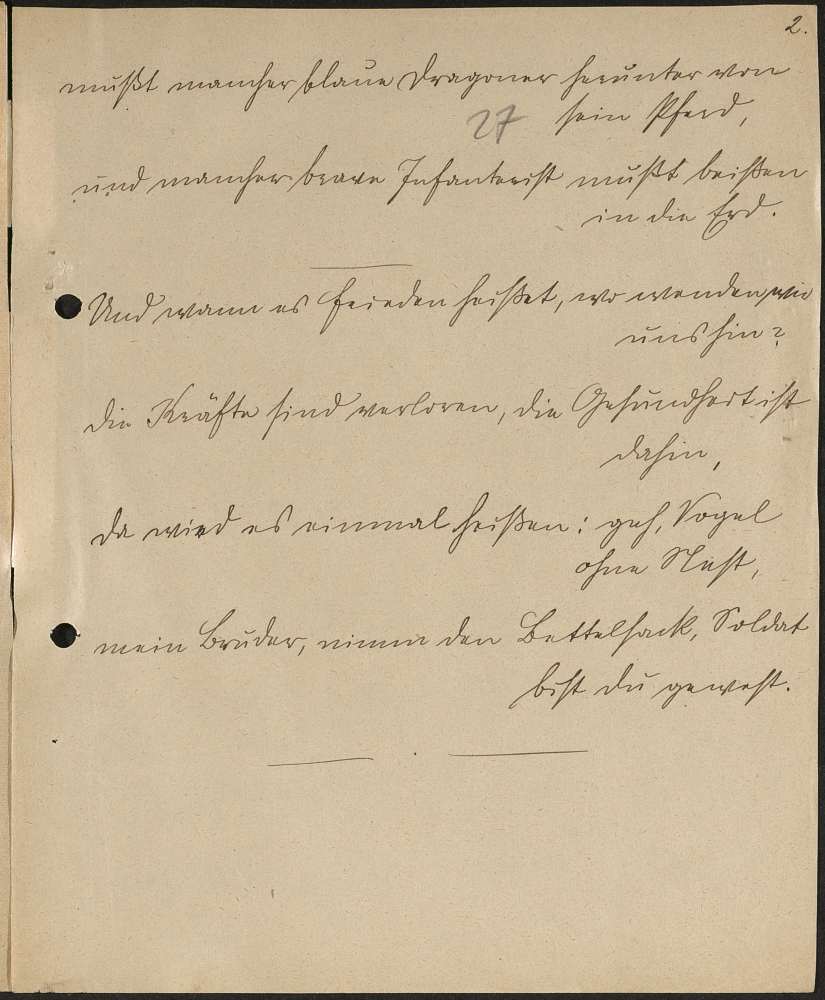 2.
mußt mancher blaue Dragoner herunter von
27 sein Pferd,
und mancher brave Infanterist mußt beißen
in die Erd.
Und wann es Frieden heißet, wo wenden wir
uns hin?
die Kräfte sind verloren, die Gesundheit ist
dahin,
da wird es einmal heißen: geh, Vogel
ohne Nest,
mein Bruder, nimm den Bettelsack, Soldat
bist du gewest.